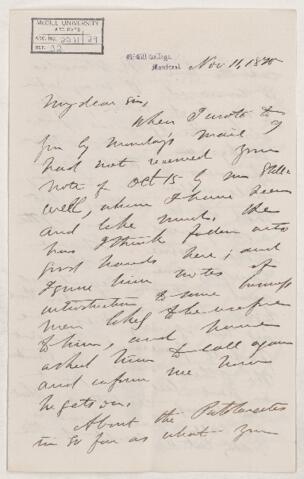 McGILL UNIVERSITY
ACC. NO.
REF. 32
McGill College,
Montreal
Nov 11, 18
My dear Sir,
When I wrote to
you by Monday's mail I
had not received your
note of Oct 15 by Mr
well, whom I have seen
and like much. He
has I think fallen into
good hands here; and
I gave him notes of
introduction to some business
men likely to be of use
to him, and have
asked him to call again
and inform me how
he gets on.
About the
in so far as what your